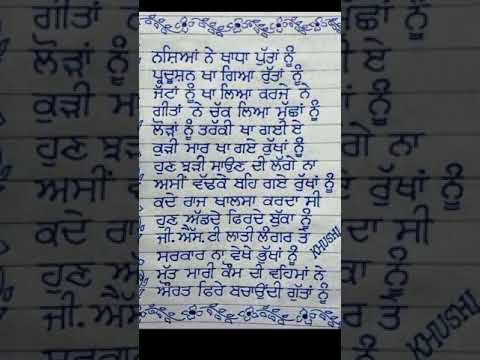 ਨਸ਼ਿਆਂ ਨੇ ਖਾਧਾ ਪੁੱਤਾਂ ਨੂੰ
ਪ੍ਰਦੂਸ਼ਨ ਖਾ ਗਿਆ ਰੁੱਤਾਂ ਨੂੰ
ਜੱਟਾਂ ਨੂੰ ਖਾ ਲਿਆ ਕਰਜੇ ਨੇ
ਗੀਤਾਂ ਨੇ ਚੁੱਕ ਲਿਆ ਮੁੱਛਾਂ ਨੂੰ
ਲੋੜਾਂ ਨੂੰ ਤਰੱਕੀ ਖਾ ਗਈ ਏ
ਕੁੜੀ ਮਾਰ ਖਾ ਗਏ ਕੁੱਖਾਂ ਨੂੰ
ਹੁਣ ਝੜੀ ਸਾਉਣ ਦੀ ਲੱਗੇ ਨਾ
ਅਸੀਂ ਵੱਢਕੇ ਬਹਿ ਗਏ ਰੁੱਖਾਂ ਨੂੰ
ਕਦੇ ਰਾਜ ਖਾਲਸਾ ਕਰਦਾ ਸੀ
ਹੁਣ ਅੱਡਦੇ ਫਿਰਦੇ ਬੁੱਕਾਂ ਨੂੰ
ਜੀ.ਐੱਸ.ਟੀ ਲਾਤੀ ਲੰਗਰ ਤੇ
ਸਰਕਾਰ ਨਾ ਵੇਖੇ ਭੁੱਖਾਂ ਨੂੰ
ਮੱਤ ਮਾਰੀ ਕੌਮ ਦੀ ਵਹਿਮਾਂ ਨੇ
ਔਰਤ ਫਿਰੇ ਬਚਾਉਂਦੀ ਗੁੱਤਾਂ ਨੂੰ
KHUSHI